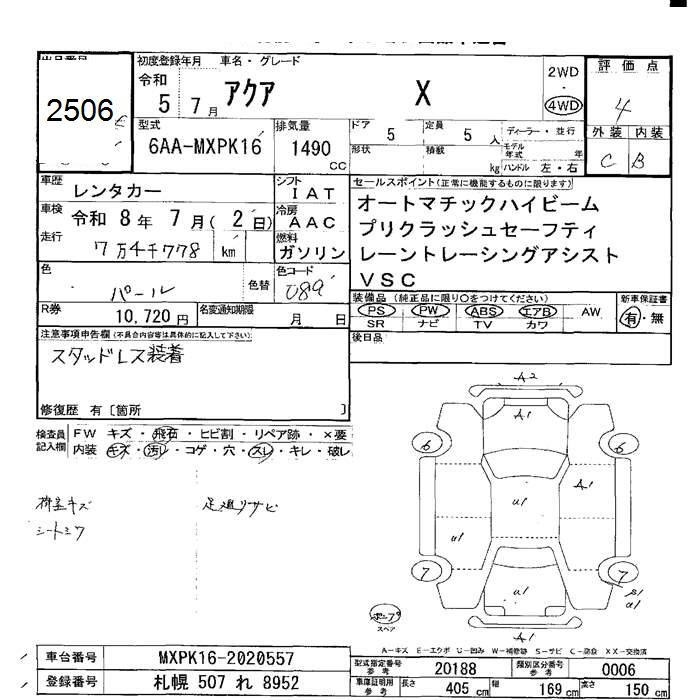 出品番号 初度登録年月 車名・グレード 評価点
2506 令和 5年 7月 アクア X 2WD・4WD 4
型式 排気量 ドア 5 定員 5人 ディーラー・並行 外装 内装
6AA-MXPK16 1490cc 形状 積載 kg モデル年式 年 ハンドル 左・右 C B
車歴 レンタカー シフト IAT セールスポイント(正常に機能するものに限ります)
車検 令和 8年 7月(2日) 冷房 AAC オートマチックハイビーム
走行 7万4千778 km 燃料 ガソリン プリクラッシュセーフティ
レーントレーシングアシスト
VSC
色 パール 色替 色コード 089
装備品(純正品に限り○をつけてください) 新車保証書
R券 10,720円 名変通知期限 月 日 PS PW ABS エアB AW 有・無
SR ナビ TV カワ
注意事項申告欄(不具合内容等は具体的に記入して下さい) 後日品
スタッドレス装着
修復歴 有〔箇所 〕
検査員記入欄 FW キズ・飛石・ヒビ割・リペア跡・×要
内装 キズ・汚レ・コゲ・穴・スレ・キレ・破レ
荷室キズ 足廻リサビ
シートシワ
A2
A1
6 6
A1
u1
u1
7 7
u1 S1
u1
A1
スペア
A-キズ E-エクボ U-凹み W-補修跡 S-サビ C-腐食 XX-交換済
車台番号 MXPK16-2020557
型式指定番号 参考 20188 類別区分番号 参考 0006
登録番号 札幌 507 れ 8952
車庫証明用 参考 長さ 405 cm 幅 169 cm 高さ 150 cm